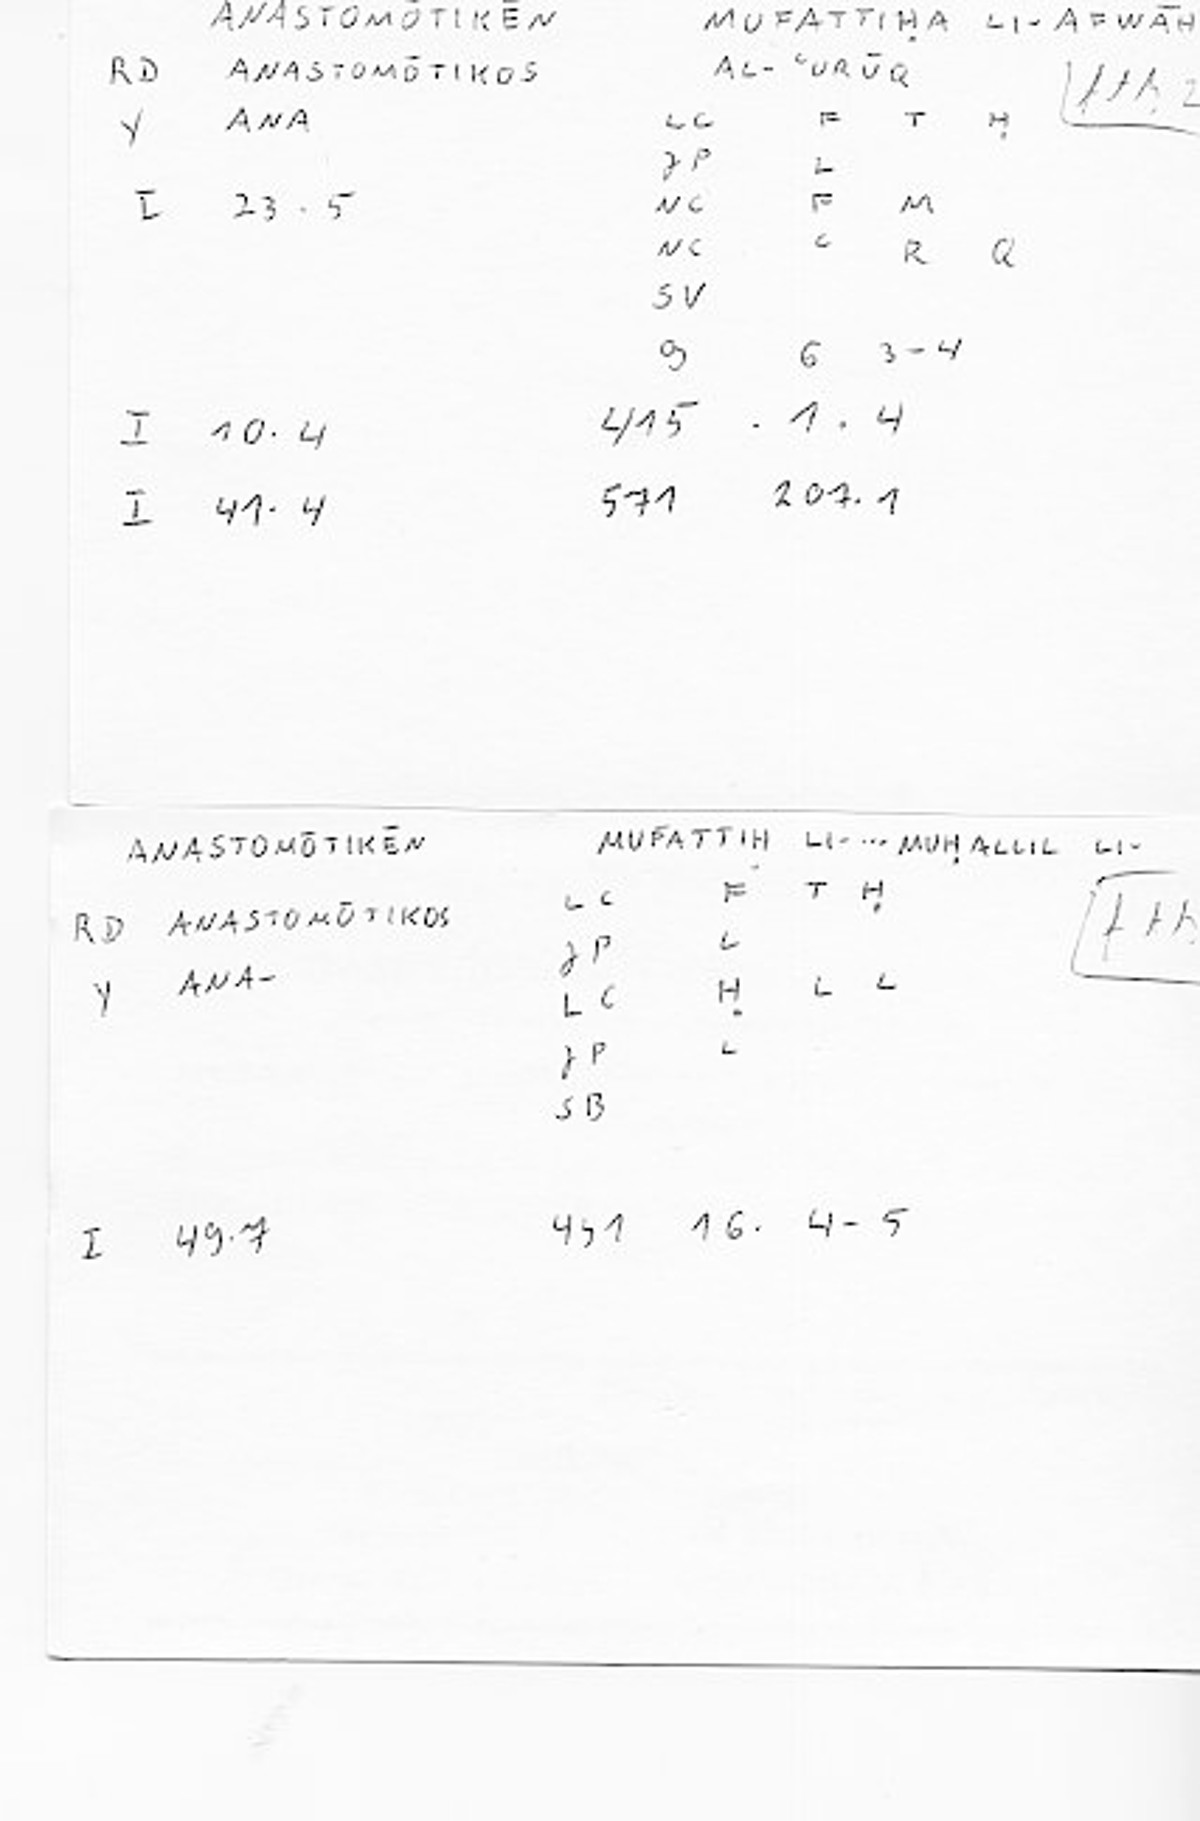 ANASTOMŌTIKĒN MUFATTIḤA LI-AFWĀH
RD ANASTOMŌTIKOS AL-ʿURŪQ
Y ANA LC F T Ḥ
JP L
I 23.5 NC F M
NC ʿ R Q
SV
9 6 3-4
I 10.4 415 . 1 . 4
I 41.4 571 207.1
ANASTOMŌTIKĒN MUFATTIḤ LI-... MUḤALLIL LI-
RD ANASTOMŌTIKOS LC F T Ḥ
JP L
Y ANA- LC Ḥ L L
JP L
SB
I 49.7 451 16. 4-5